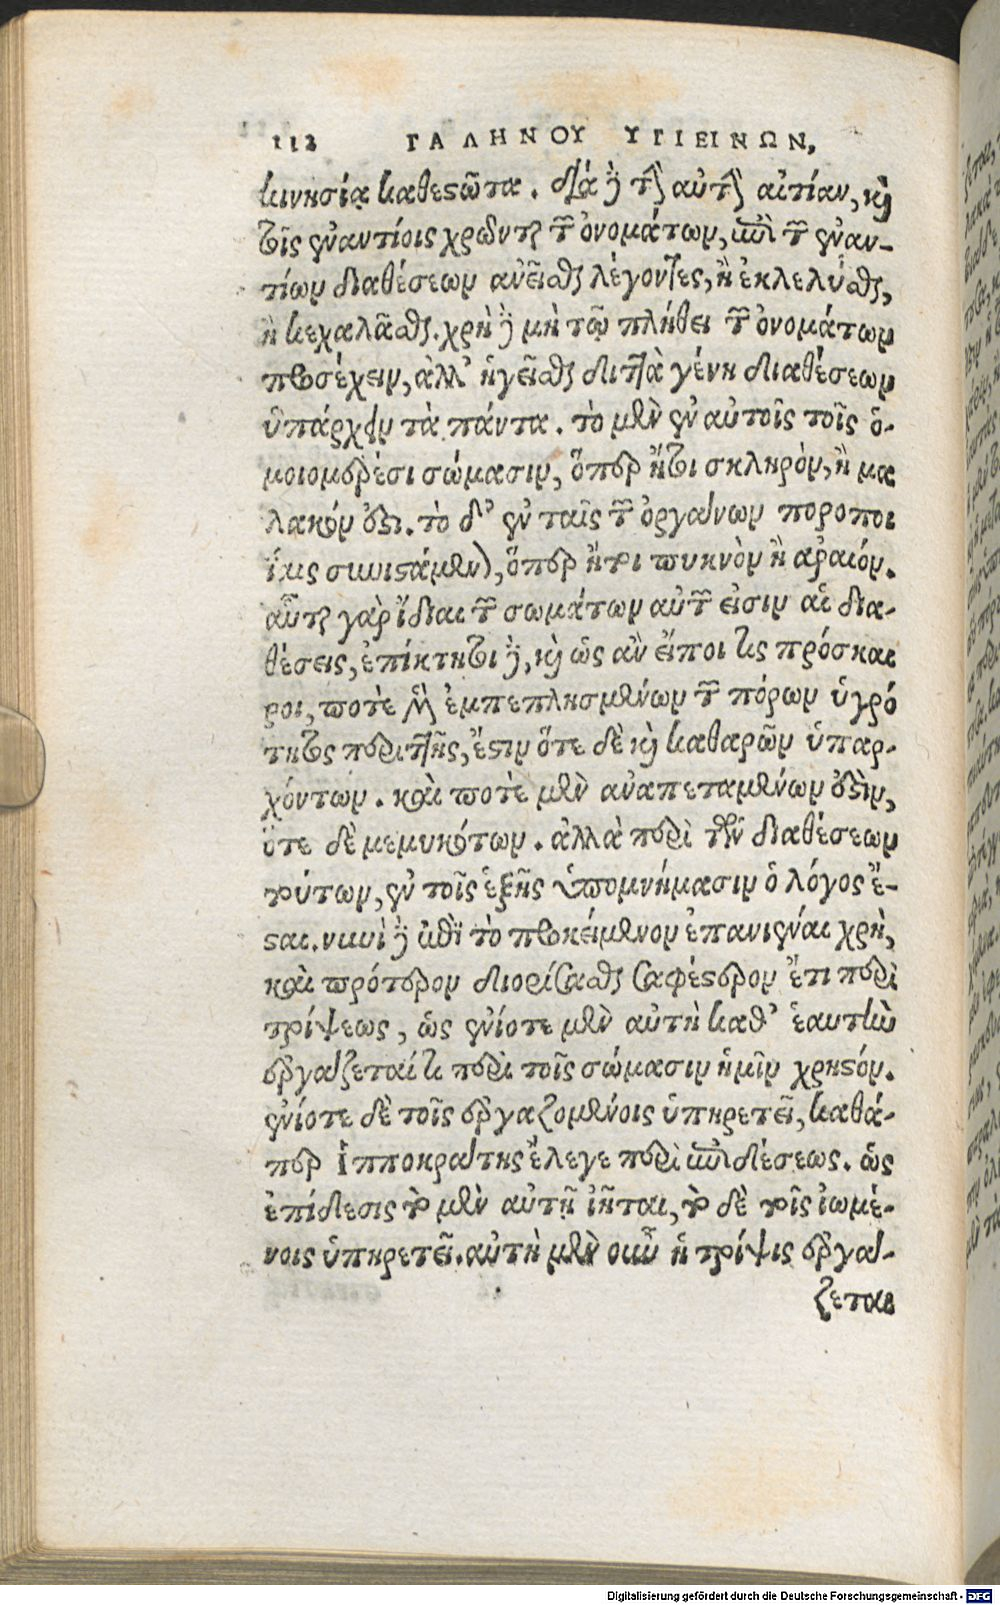 112 ΓΑΛΗΝΟΥ ΥΓΙΕΙΝΩΝ,
κινησίᾳ καθεστῶτα. διὰ δὲ τὴν αὐτὴν αἰτίαν, καὶ
τοῖς ἐναντίοις χρῶνται τῶν ὀνομάτων, ἐπὶ τῶν ἐναν-
τίων διαθέσεων ἀνεῖσθαι λέγοντες, ἢ ἐκλελύσθαι,
ἢ κεχαλᾶσθαι. χρὴ δὲ μὴ τῷ πλήθει τῶν ὀνομάτων
προσέχειν, ἀλλ' ἡγεῖσθαι διττὰ γένη διαθέσεων
ὑπάρχειν τὰ πάντα. τὸ μὲν ἐν αὐτοῖς τοῖς ὁ-
μοιομερέσι σώμασιν, ὅπερ ἤτοι σκληρὸν, ἢ μα
λακόν ἐστι. τὸ δ' ἐν ταῖς τῶν ὀργάνων ποροποι
ίαις συνιστάμενον, ὅπερ ἤτοι πυκνὸν ἢ ἀραιόν.
αὗται γὰρ ἴδιαι τῶν σωμάτων αὐτῶν εἰσιν αἱ δια-
θέσεις, ἐπίκτητοι δὲ, καὶ ὡς ἂν εἴποι τις πρόσκαι
ροι, ποτὲ μὲν ἐμπεπλησμένων τῶν πόρων ὑγρό
τητος περιττῆς, ἔστιν ὅτε δὲ καὶ καθαρῶν ὑπαρ-
χόντων. καὶ ποτὲ μὲν ἀναπεταμένων ἐστὶν,
ὅτε δὲ μεμυκότων. ἀλλὰ περὶ τῶν διαθέσεων
τούτων, ἐν τοῖς ἑξῆς ὑπομνήμασιν ὁ λόγος ἔ-
σται. νυνὶ δὲ ἐπὶ τὸ προκείμενον ἐπανιέναι χρὴ,
καὶ πρότερον διορίσασθαι σαφέστερον ἔτι περὶ
τρίψεως, ὡς ἐνίοτε μὲν αὐτὴ καθ' ἑαυτὴν
ἐργάζεταί τι περὶ τοῖς σώμασιν ἡμῖν χρηστόν.
ἐνίοτε δὲ τοῖς ἐργαζομένοις ὑπηρετεῖ, καθά-
περ Ἱπποκράτης ἔλεγε περὶ ἐπιδέσεως. ὡς
ἐπίδεσις τὸ μὲν αὐτὴ ἰῆται, τὸ δὲ τοῖς ἰωμέ-
νοις ὑπηρετεῖ. αὐτὴ μὲν οὖν ἡ τρίψις ἐργά-
ζεται
Digitalisierung gefördert durch die Deutsche Forschungsgemeinschaft - DFG